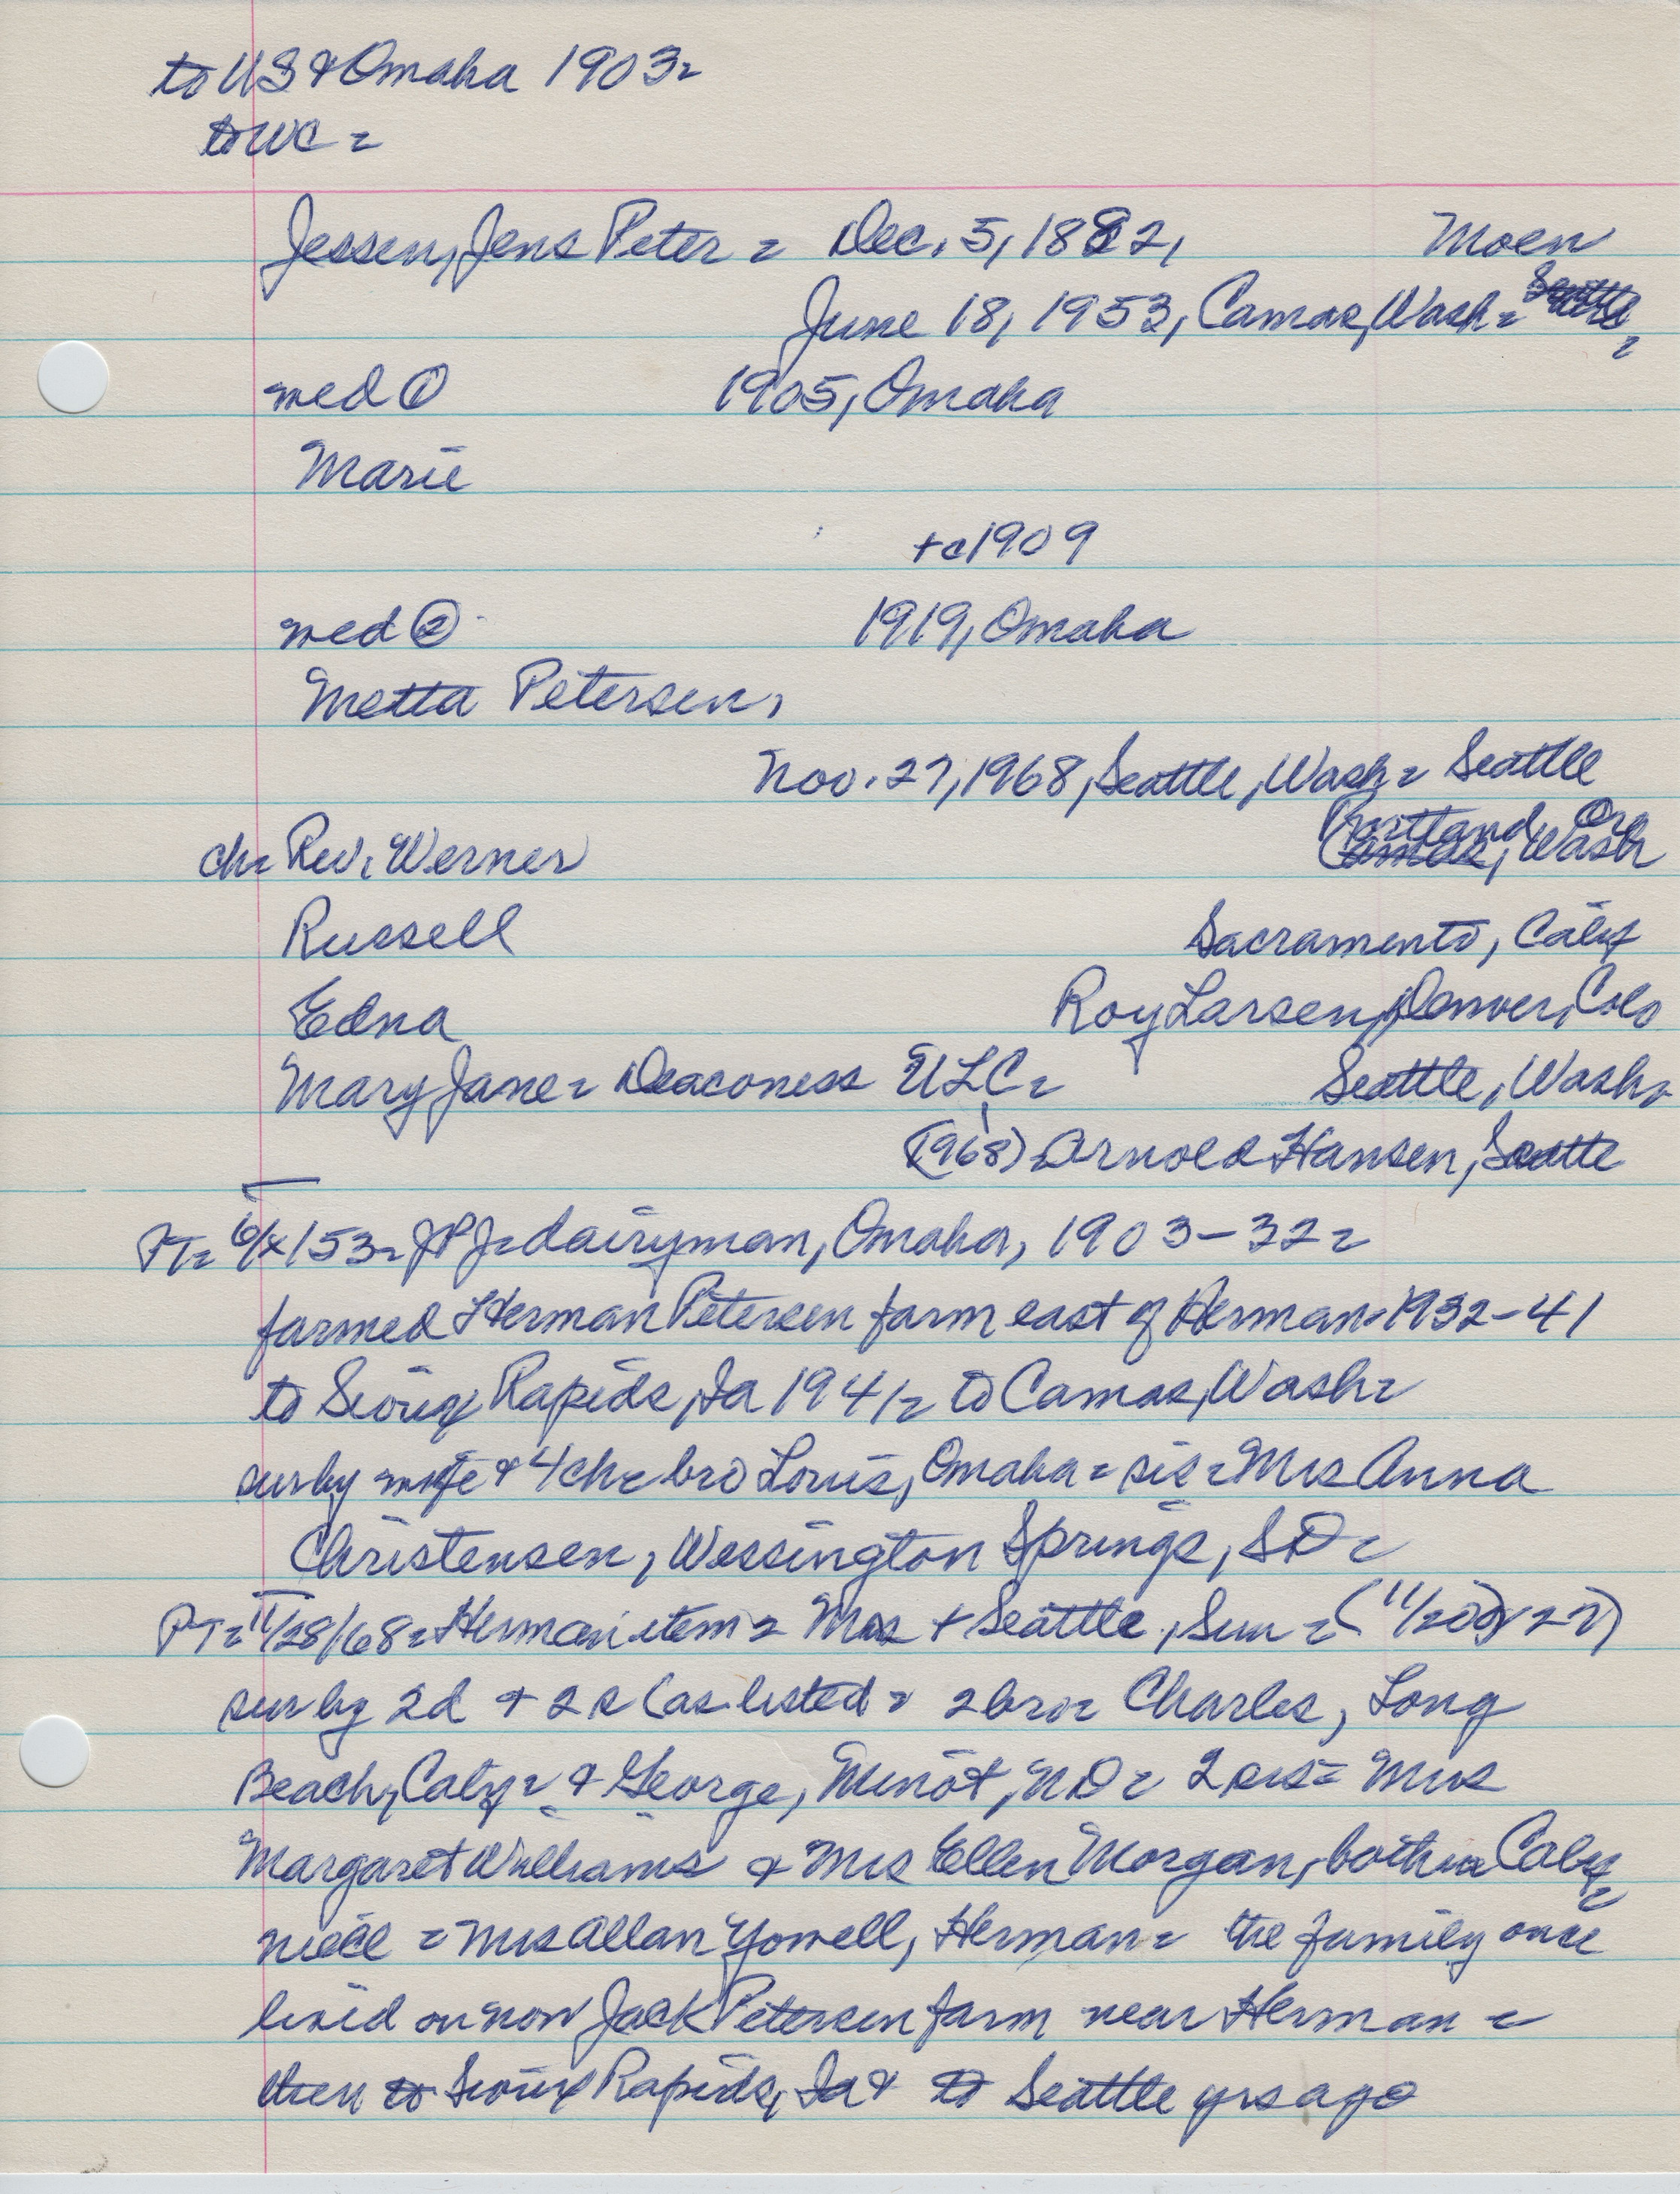 to US & Omaha 1903=
to WC =
Jessen, Jens Peter = Dec. 5, 1882, Moen
June 18, 1953, Camas, Wash =
med ① 1905, Omaha
Marie
+c1909
med ② 1919, Omaha
Metta Petersen,
Nov. 27, 1968, Seattle, Wash = Seattle
Portland, Ore
ch= Rev. Werner Camas, Wash
Russell Sacramento, Calif
Edna Roy Larsen, Denver, Colo
Mary Jane = Deaconess ULC = Seattle, Wash=
(1968) = Arnold Hansen, Seattle
PT= 153= JPJ= dairyman, Omaha, 1903-32=
farmed Herman Petersen farm east of Herman= 1932-41
to Sioux Rapids, Ia 1941= to Camas, Wash=
sur by wife & 4 ch= bro Louis, Omaha = sis = Mrs Anna
Christensen, Wessington Springs, SD=
PT= 11/28/68= Herman item = Mrs + Seattle, Sun = (11/20 27)
sur by 2d & 2s (as listed = 2 bro= Charles, Long
Beach, Calif= & George, Minot, ND= 2 sis= Mrs
Margaret Williams & Mrs Ellen Morgan, both in Calif=
niece = Mrs Allan Yowell, Herman= the family once
lived on now Jack Petersen farm near Herman =
then to Sioux Rapids, Ia & to Seattle yrs ago